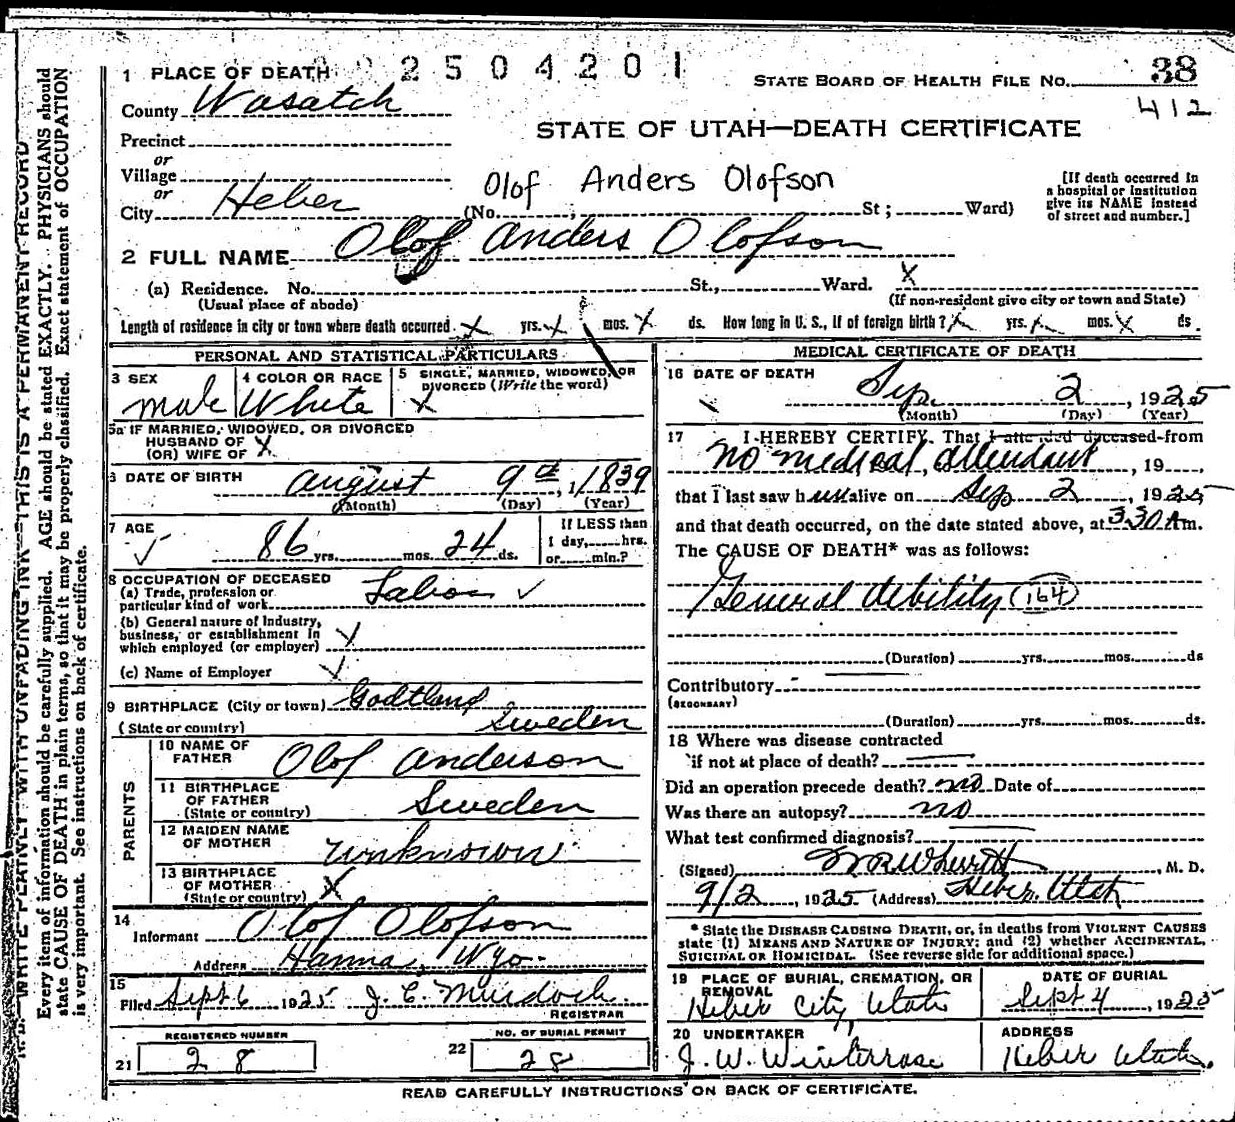 2504201
1 PLACE OF DEATH
STATE BOARD OF HEALTH FILE NO. 38
County Wasatch
412
STATE OF UTAH—DEATH CERTIFICATE
Precinct
or
Village
or
Olof Anders Olofson
[If death occurred in
a hospital or institution
give its NAME instead
of street and number.]
City Heber (No. ; St ; Ward)
2 FULL NAME Olof Anders Olofson
(a) Residence. No. St., Ward. X
(Usual place of abode) (If non-resident give city or town and State)
Length of residence in city or town where death occurred X yrs. X mos. X ds. How long in U. S., if of foreign birth? X yrs. X mos. X ds.
PERSONAL AND STATISTICAL PARTICULARS
3 SEX
male
4 COLOR OR RACE
White
5 SINGLE, MARRIED, WIDOWED, OR
DIVORCED (Write the word)
X
5a IF MARRIED, WIDOWED, OR DIVORCED
HUSBAND OF
(OR) WIFE OF X
6 DATE OF BIRTH August 9th, 1839
(Month) (Day) (Year)
7 AGE
86 yrs. mos. 24 ds.
If LESS than
1 day, hrs.
or min.?
8 OCCUPATION OF DECEASED
(a) Trade, profession or
particular kind of work Labor
(b) General nature of Industry,
business, or establishment in
which employed (or employer)
(c) Name of Employer
9 BIRTHPLACE (City or town) Godtland
(State or country) Sweden
PARENTS
10 NAME OF
FATHER Olof Anderson
11 BIRTHPLACE
OF FATHER
(State or country) Sweden
12 MAIDEN NAME
OF MOTHER Unknown
13 BIRTHPLACE
OF MOTHER
(State or country) X
14
Informant Olof Olofson
Address Hanna, Wyo.
15
Filed Sept 6, 1925 J. C. Murdoch
REGISTRAR
REGISTERED NUMBER
21 28
NO. OF BURIAL PERMIT
22 28
MEDICAL CERTIFICATE OF DEATH
16 DATE OF DEATH
Sep. 2, 1925
(Month) (Day) (Year)
17 I HEREBY CERTIFY, That I attended deceased from
No medical attendant, 19
that I last saw h alive on Sep 2, 1925
and that death occurred, on the date stated above, at 3:30 A m.
The CAUSE OF DEATH* was as follows:
General debility (164)
(Duration) yrs. mos. ds
Contributory
(SECONDARY)
(Duration) yrs. mos. ds.
18 Where was disease contracted
if not at place of death?
Did an operation precede death? no Date of
Was there an autopsy? no
What test confirmed diagnosis?
(Signed) , M. D.
9/2, 1925 (Address) Heber, Utah
* State the DISEASE CAUSING DEATH, or, in deaths from VIOLENT CAUSES
state (1) MEANS AND NATURE OF INJURY; and (2) whether ACCIDENTAL,
SUICIDAL OR HOMICIDAL. (See reverse side for additional space.)
19 PLACE OF BURIAL, CREMATION, OR
REMOVAL
Heber City, Utah
DATE OF BURIAL
Sept 4, 1925
20 UNDERTAKER
J. W. Winterrose
ADDRESS
Heber Utah.
READ CAREFULLY INSTRUCTIONS ON BACK OF CERTIFICATE.
WRITE PLAINLY WITH UNFADING INK—THIS IS A PERMANENT RECORD
Every item of information should be carefully supplied. AGE should be stated EXACTLY. PHYSICIANS should
state CAUSE OF DEATH in plain terms, so that it may be properly classified. Exact statement of OCCUPATION
is very important. See instructions on back of certificate.